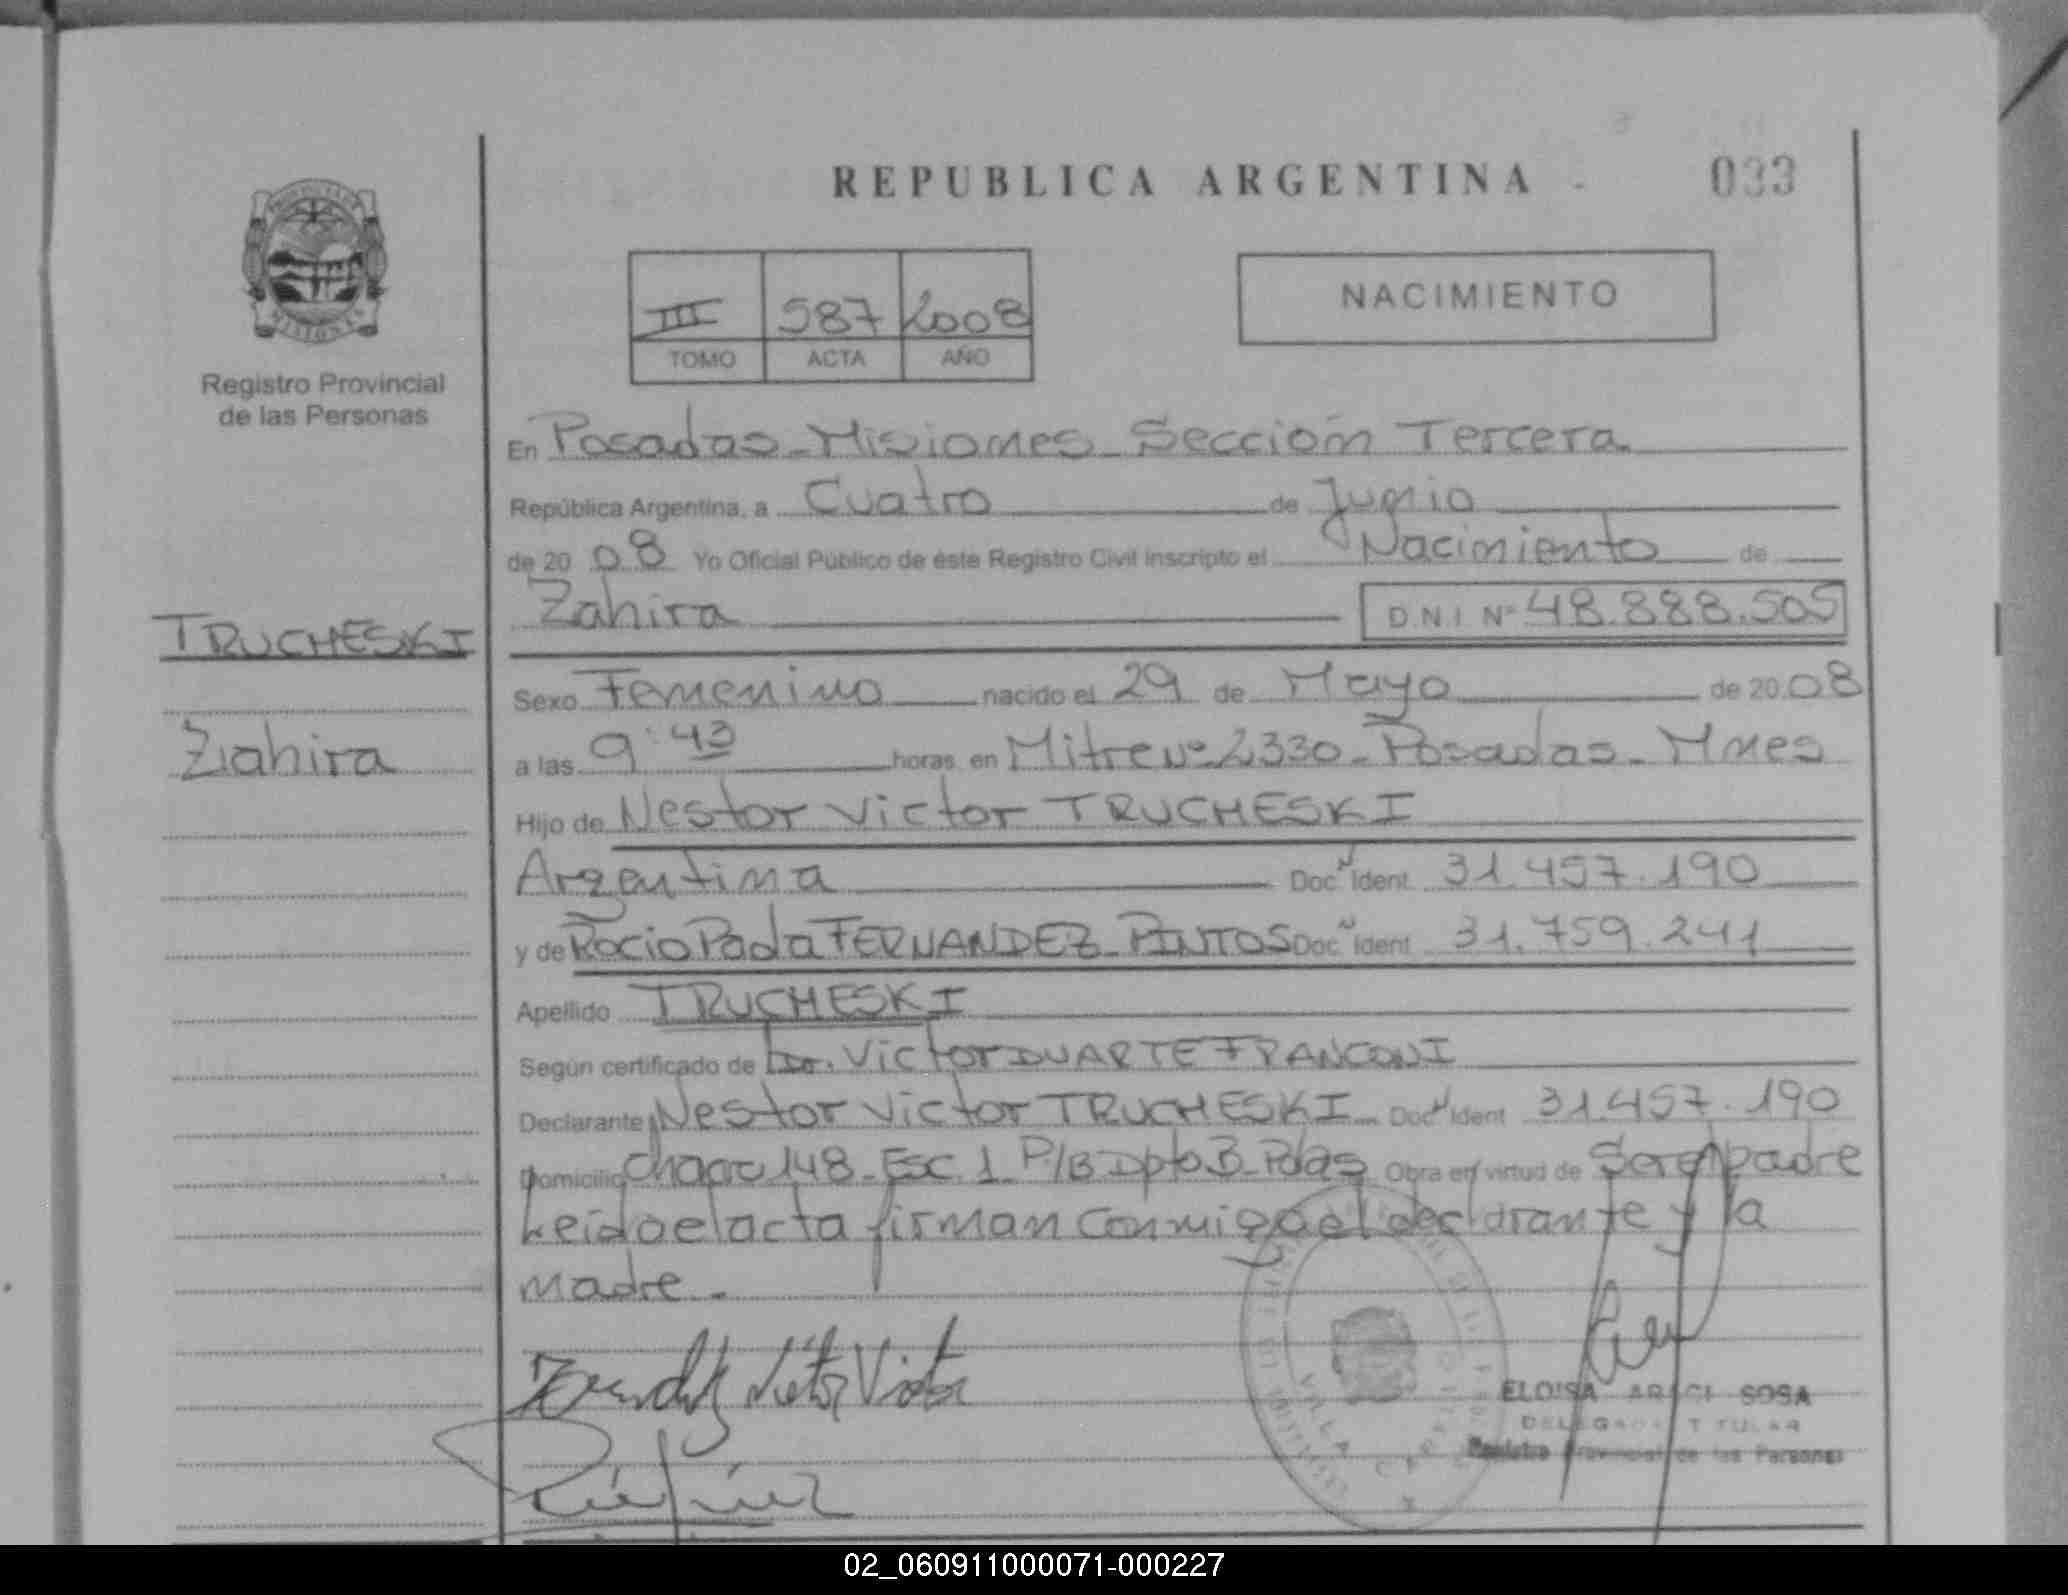 REPUBLICA ARGENTINA - 033
PROVINCIA DE
MISIONES
Registro Provincial
de las Personas
III 587 2008
TOMO ACTA AÑO
NACIMIENTO
En Posadas - Misiones - Sección Tercera
República Argentina, a Cuatro de Junio
de 20 08 Yo Oficial Público de éste Registro Civil inscripto el Nacimiento de
Zahira D.N.I. Nº 48.888.505
TRUCHESKI
Zahira
Sexo Femenino nacido el 29 de Mayo de 20 08
a las 9:43 horas en Mitre Nº 2330 - Posadas - Mnes
Hijo de Nestor Victor TRUCHESKI
Argentina Doc. Ident. 31.457.190
y de Rocio FERNANDEZ PINTOS Doc. Ident. 31.759.241
Apellido TRUCHESKI
Según certificado de Dr. Victor DUARTE FRANCONI
Declarante Nestor Victor TRUCHESKI Doc. Ident. 31.457.190
Domicilio Chaco 148 - Esc. 1 P/B Dpto B - Pdas Obra en virtud de Ser el padre
Leido el acta firman conmigo el declarante y la
madre.-
Victor
ELOISA ARACI SOSA
DELEGADA TITULAR
Registro Provincial de las Personas
02_060911000071-000227